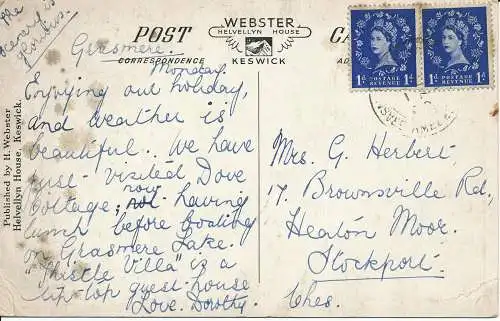 The
scenery is
glorious.
POST
CORRESPONDENCE
WEBSTER
HELVELLYN HOUSE
KESWICK
CA
AD
1d POSTAGE REVENUE 1d
1d POSTAGE REVENUE 1d
Grasmere.
Monday.
Enjoying our holiday,
and weather is
beautiful. We have
just visited Dove
Cottage, now having
lunch before boating
on Grasmere Lake.
"Thistle Villa" is a
tip-top guest-house
Love. Dorothy.
Mrs. G. Herbert
17, Brownsville Rd,
Heaton Moor.
Stockport.
Ches.
Published by H. Webster
Helvellyn House, Keswick.